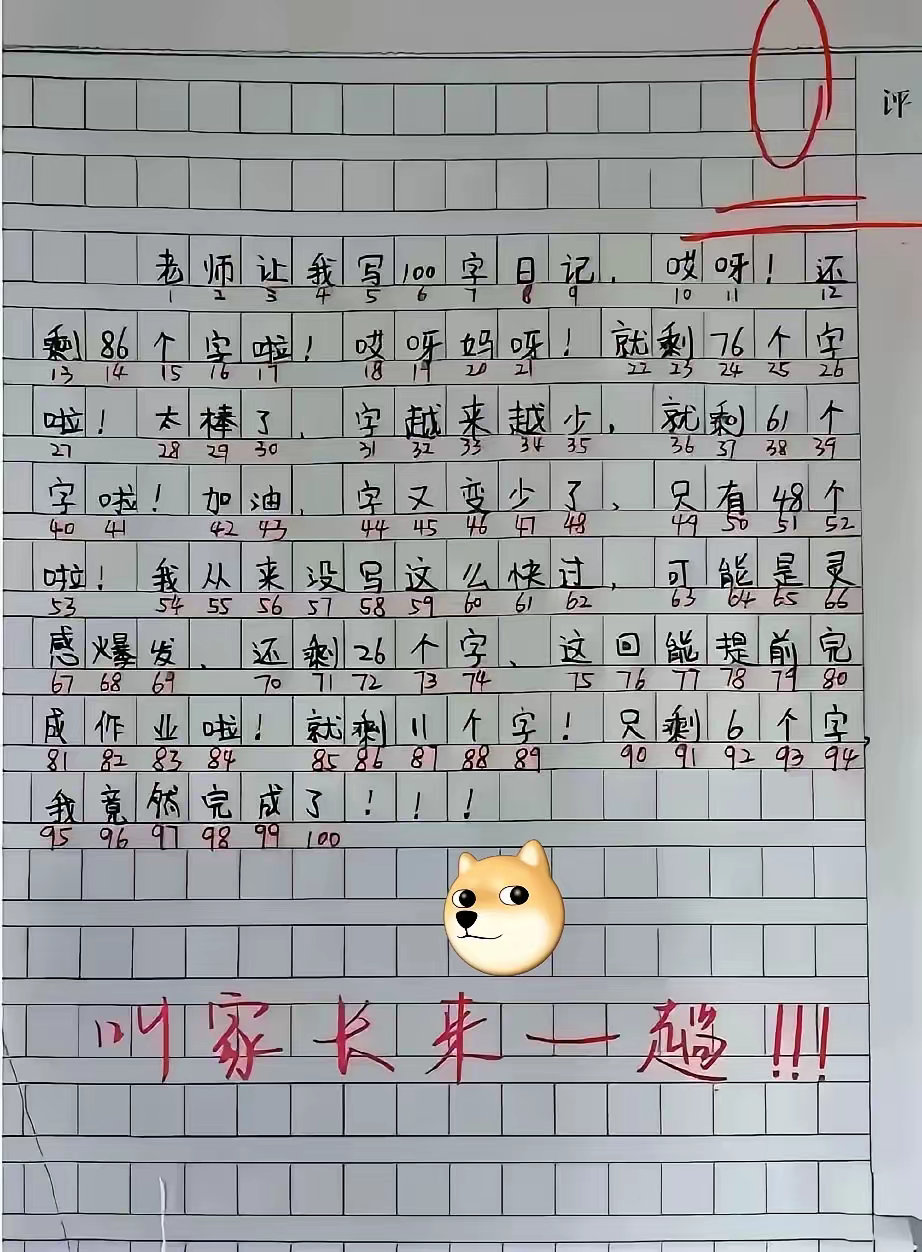 评
老师让我写100字日记，哎呀！还
1 2 3 4 5 6 7 8 9 10 11 12
剩86个字啦！哎呀妈呀！就剩76个字
13 14 15 16 17 18 19 20 21 22 23 24 25 26
啦！太棒了、字越来越少，就剩61个
27 28 29 30 31 32 33 34 35 36 37 38 39
字啦！加油、字又变少了、只有48个
40 41 42 43 44 45 46 47 48 49 50 51 52
啦！我从来没写这么快过，可能是灵
53 54 55 56 57 58 59 60 61 62 63 64 65 66
感爆发、还剩26个字、这回能提前完
67 68 69 70 71 72 73 74 75 76 77 78 79 80
成作业啦！就剩11个字！只剩6个字，
81 82 83 84 85 86 87 88 89 90 91 92 93 94
我竟然完成了！！！
95 96 97 98 99 100
叫家长来一趟!!!